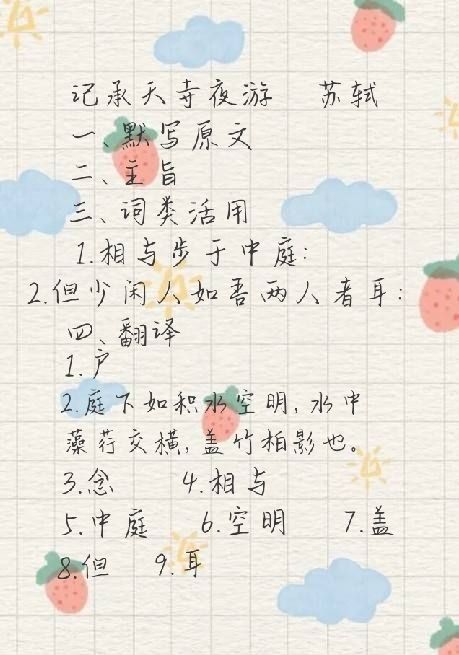 记承天寺夜游 苏轼
一、默写原文
二、主旨
三、词类活用
1.相与步于中庭:
2.但少闲人如吾两人者耳:
四、翻译
1.户
2.庭下如积水空明,水中
藻荇交横,盖竹柏影也。
3.念 4.相与
5.中庭 6.空明 7.盖
8.但 9.耳